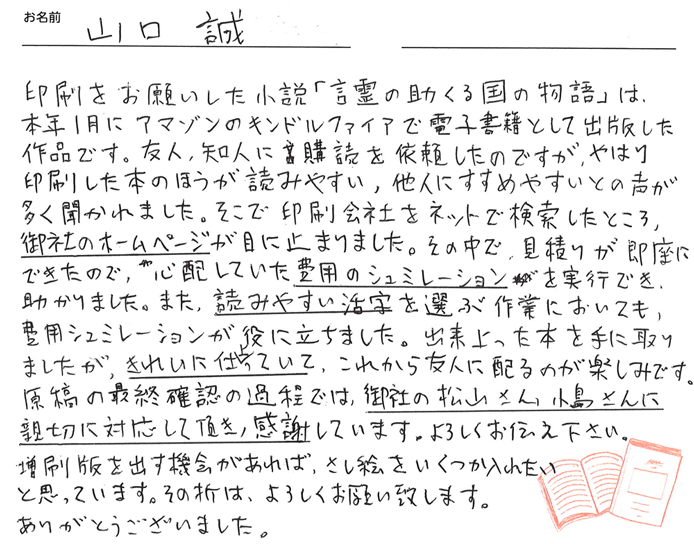 お名前 山口 誠
印刷をお願いした小説「言霊の助くる国の物語」は、
本年1月にアマゾンのキンドルファイアで電子書籍として出版した
作品です。友人,知人に購読を依頼したのですが,やはり
印刷した本のほうが読みやすい,他人にすすめやすいとの声が
多く聞かれました。そこで印刷会社をネットで検索したところ,
御社のホームページが目に止まりました。その中で,見積りが即座に
できたので,心配していた費用のシュミレーションを実行でき,
助かりました。また,読みやすい活字を選ぶ作業においても,
費用シュミレーションが役に立ちました。出来上った本を手に取り
ましたが,きれいに仕上っていて,これから友人に配るのが楽しみです。
原稿の最終確認の過程では,御社の松山さん,小島さんに
親切に対応して頂き,感謝しています。よろしくお伝え下さい。
増刷版を出す機会があれば,さし絵をいくつか入れたい
と思っています。その折は,よろしくお願い致します。
ありがとうございました。